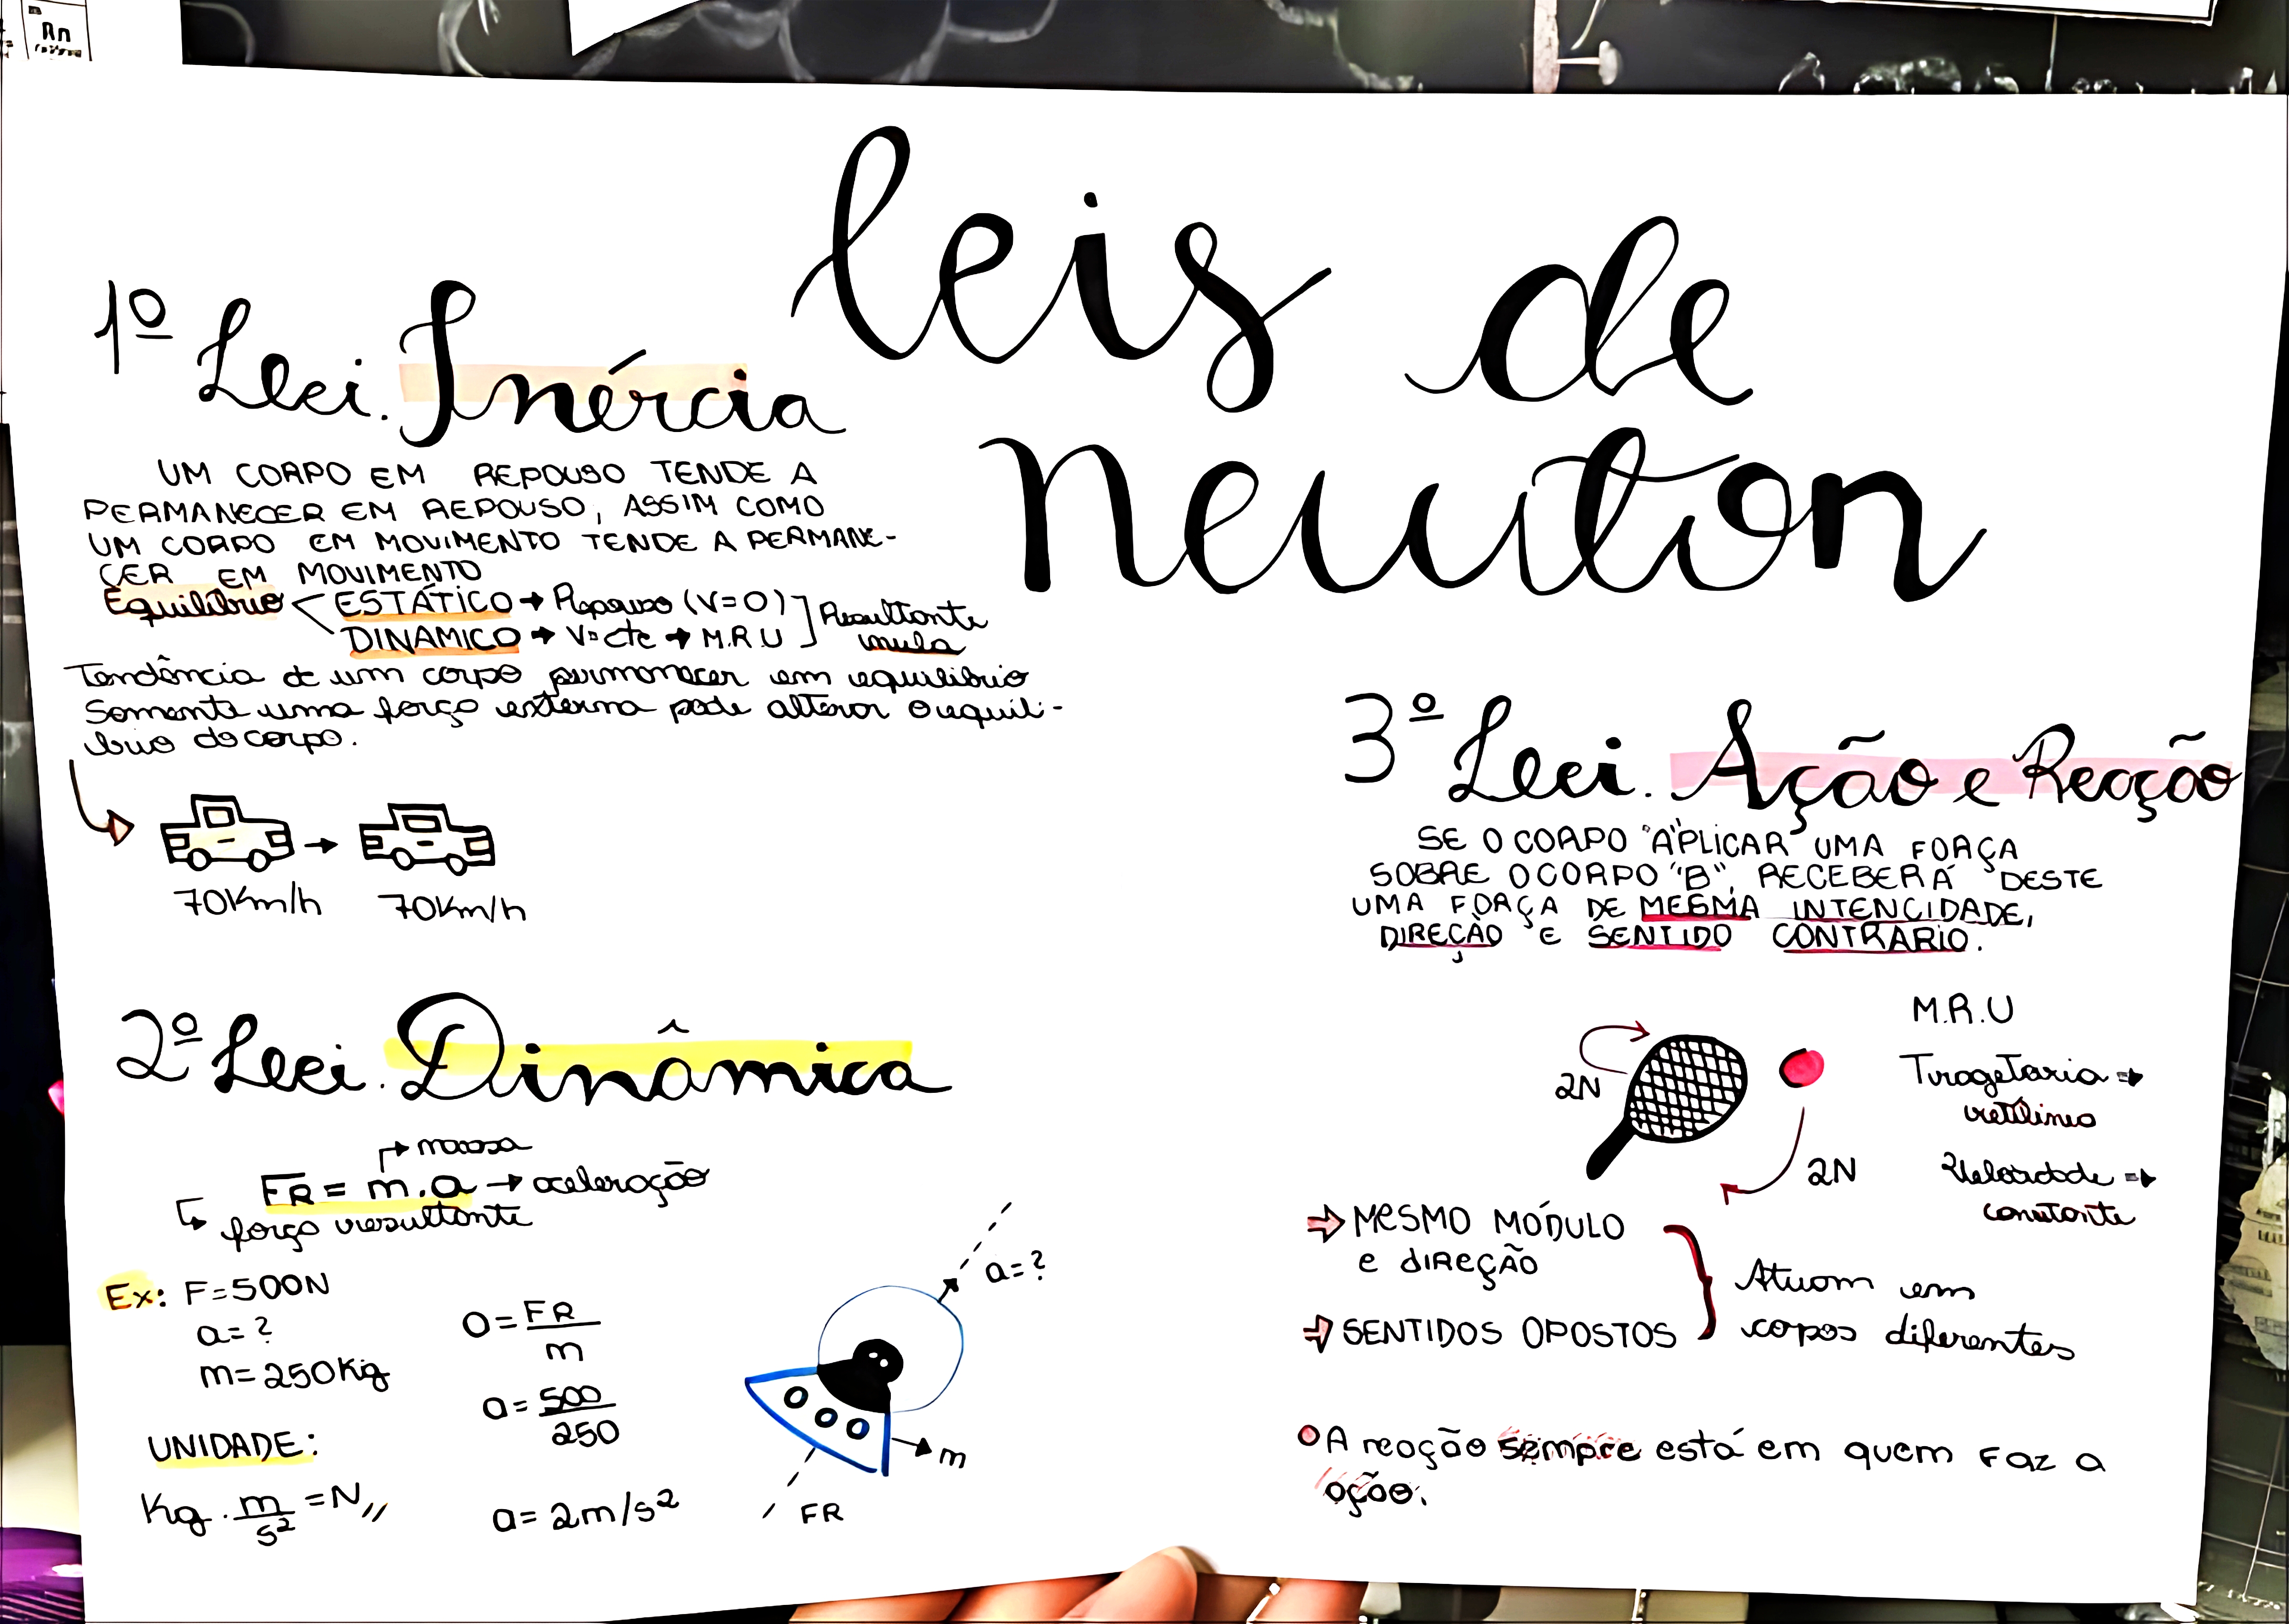 Rn
leis de
Newton
1º Lei. Inércia
UM CORPO EM REPOUSO TENDE A
PERMANECER EM REPOUSO, ASSIM COMO
UM CORPO EM MOVIMENTO TENDE A PERMANE-
CER EM MOVIMENTO
Equilíbrio ESTÁTICO → Repouso (V=0)
DINÂMICO → V=cte → M.R.U
Resultante
nula
Tendência de um corpo permanecer em equilibrio
Somente uma força externa pode alterar o equili-
brio do corpo.
→
70Km/h 70Km/h
2º Lei. Dinâmica
→ massa
FR = m.a → aceleração
força resultante
Ex: F=500N
a=?
m=250Kg
UNIDADE:
Kg . m/s² = N,,
a = FR/m
a = 500/250
a = 2m/s²
a=?
m
FR
3º Lei. Ação e Reação
SE O CORPO "A" APLICAR UMA FORÇA
SOBRE O CORPO "B", RECEBERÁ DESTE
UMA FORÇA DE MESMA INTENCIDADE,
DIREÇÃO E SENTIDO CONTRARIO.
2N
2N
M.R.U
Tragetoria →
retilinio
Velocidade →
constante
⇒ MESMO MÓDULO
e direção
⇒ SENTIDOS OPOSTOS
Atuam em
copos diferentes
A reação sempre está em quem faz a
ação.